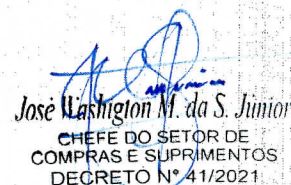 José Washigton M. da S. Junior
CHEFE DO SETOR DE
COMPRAS E SUPRIMENTOS
DECRETO N° 41/2021